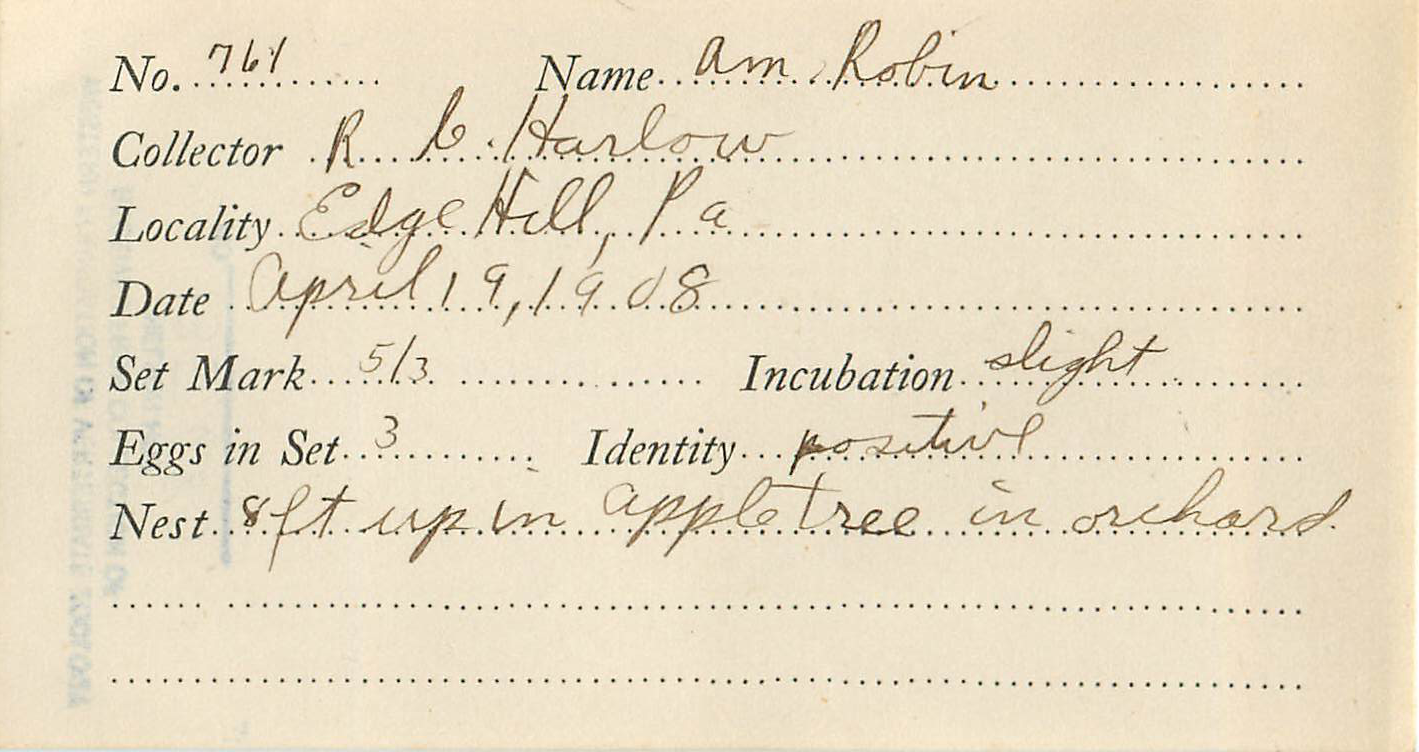 No. 761 Name am Robin
Collector R C Harlow
Locality Edge Hill, Pa
Date April 19, 1908
Set Mark 5/3 Incubation slight
Eggs in Set 3 Identity positive
Nest 8ft up in apple tree in orchard